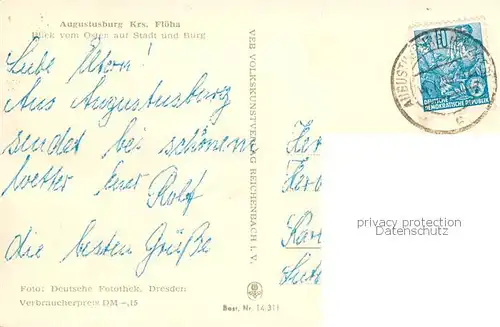 Augustusburg Krs. Flöha
Blick vom Osten auf Stadt und Burg
Liebe Eltern!
Aus Augustusburg
sendet bei schönem
Wetter Euer Rolf
die besten Grüße
Foto: Deutsche Fotothek, Dresden
Verbraucherpreis DM -,15
VEB VOLKSKUNSTVERLAG REICHENBACH i. V.
Best. Nr. 14 311
DEUTSCHE
DEMOKRATISCHE REPUBLIK
privacy protection
www.ansichtskartenversand.com